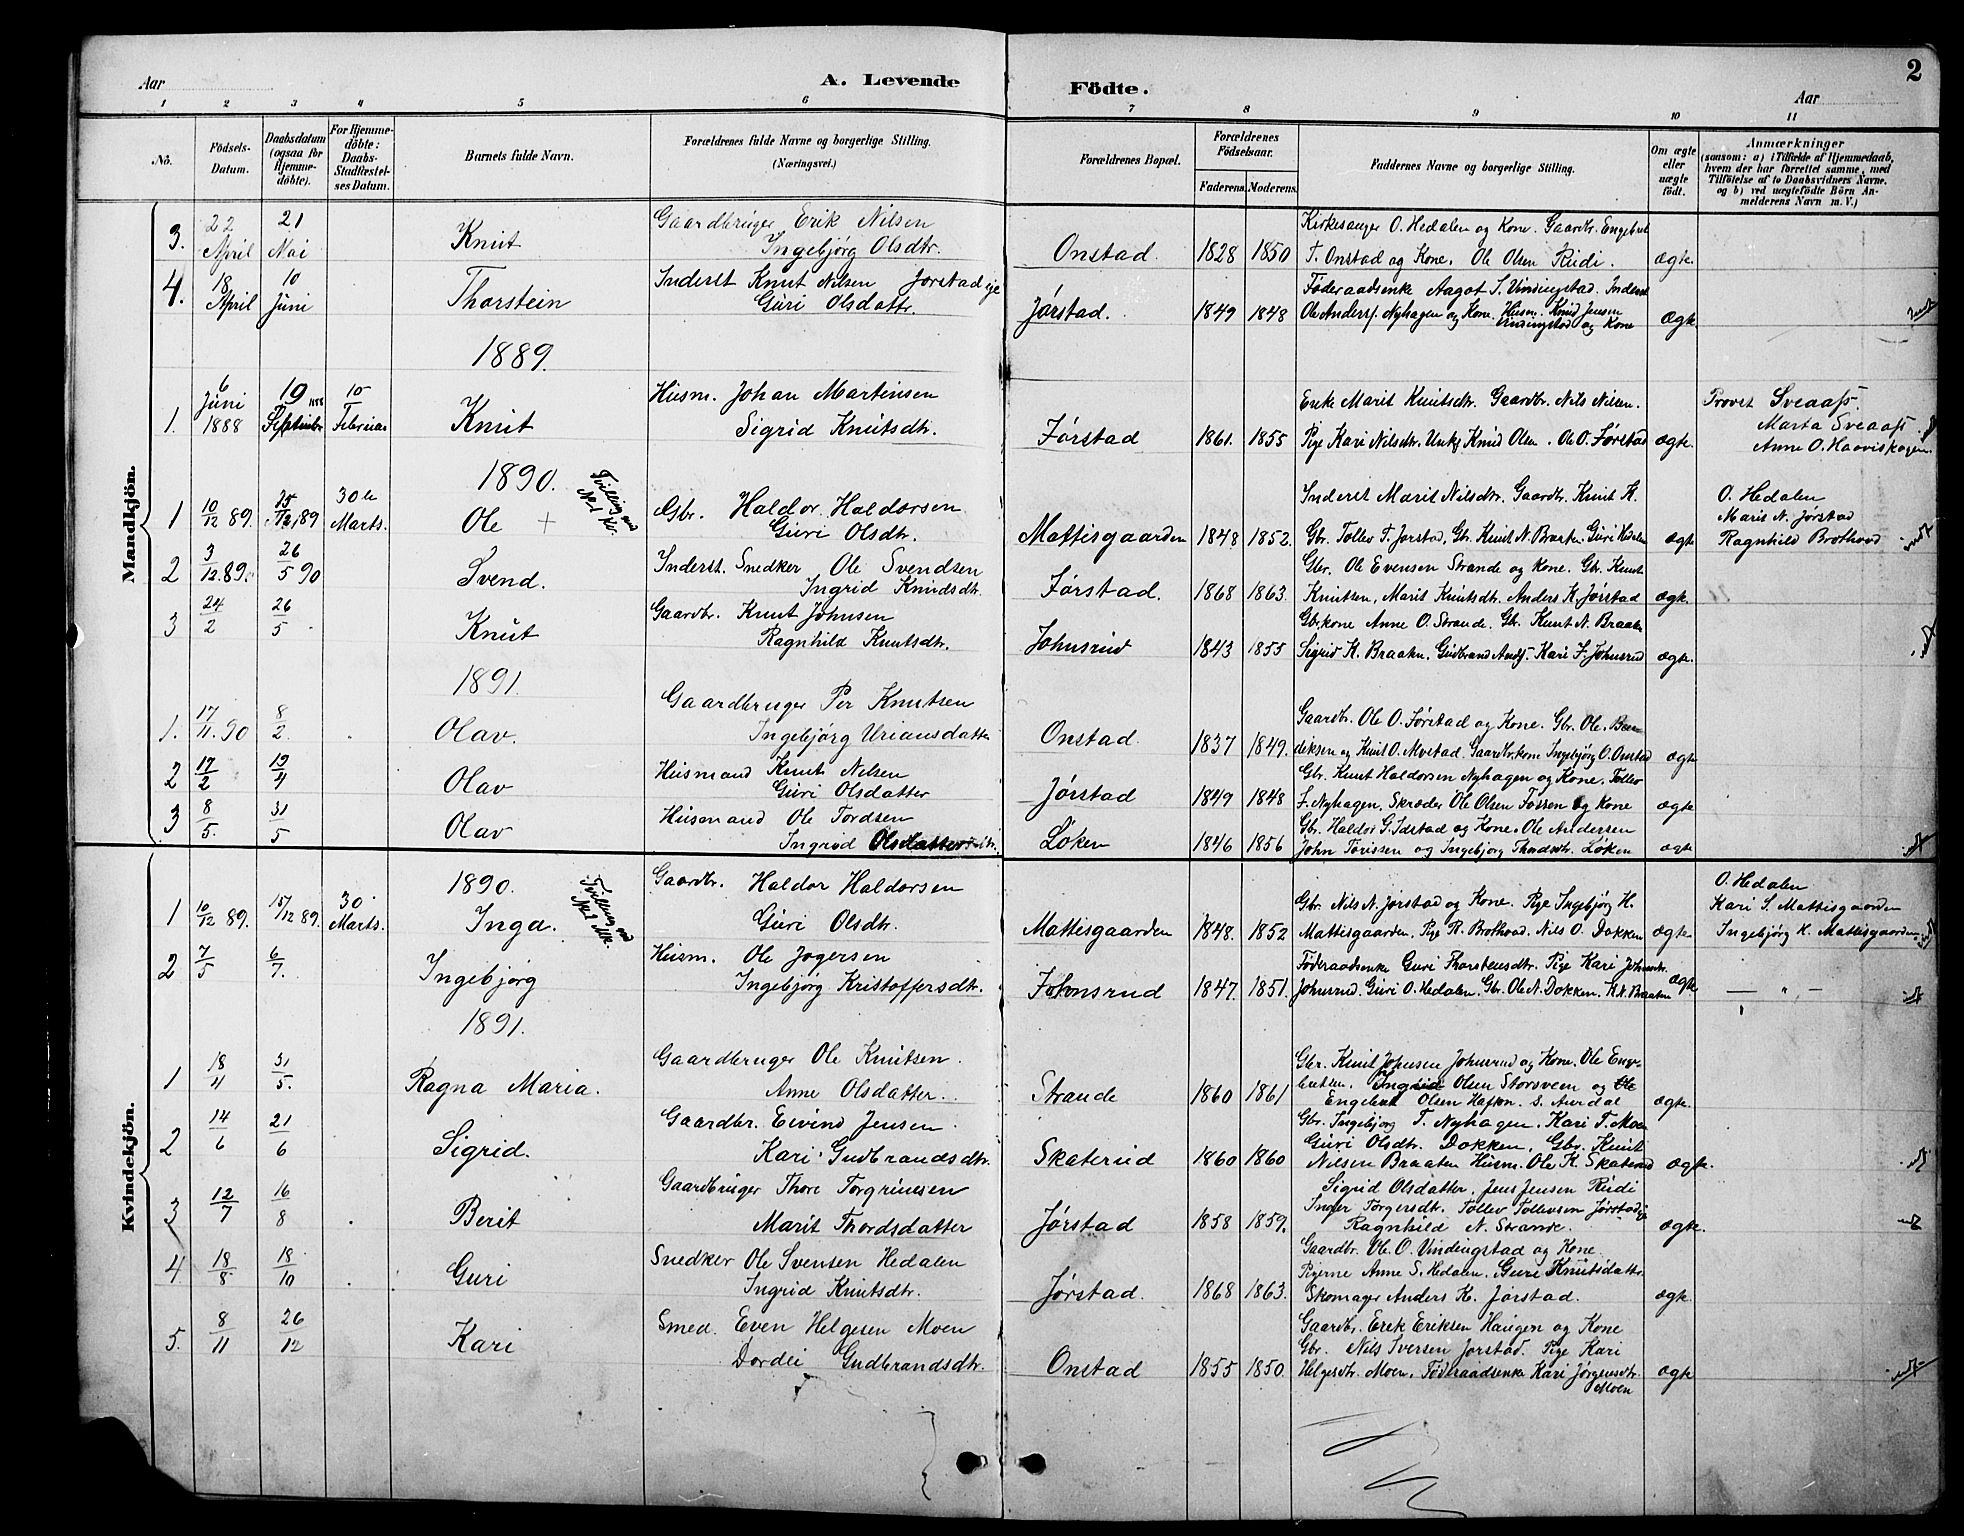 Aar
A. Levende
Födte.
Aar
2
1 2 3 4 5 6 7 8 9 10 11
No.
Födsels-Datum.
Daabsdatum (ogsaa for Hjemme-döbte).
For Hjemme-döbte: Daabs-Stadfæstel-ses Datum.
Barnets fulde Navn.
Forældrenes fulde Navne og borgerlige Stilling.
(Næringsvei.)
Forældrenes Bopæl.
Forældrenes Födselsaar.
Faderens. Moderens.
Faddernes Navne og borgerlige Stilling.
Om ægte eller uægte födt.
Anmærkninger
(saasom: a) i Tilfælde af Hjemmedaab,
hvem der har forrettet samme, med
Tilföielse af to Daabsvidners Navne,
og b) ved uægtefödte Börn An-
melderens Navn m. V.)
Mandkjön.
3. 22 April 21 Mai Knut
Gaardbruger Erik Nilsen
Ingebjørg Olsdtr.
Onstad. 1828 1850
Kirkesanger O. Hedalen og Kone. Gaardbr. Engebret
T. Onstad og Kone. Ole Olsen Rudi. ægte
4. 18 April 10 Juni Thorstein
Inderst Knut Nilsen Jorstadeje
Guri Olsdatter.
Jørstad. 1849 1848
Føderaadsenke Aagot S. Vindingstad. Inderst
Ole Anders. Nyhagen og Kone. Husm. Knud Jensen
Vindingstad og Kone ægte.
1889.
1. 6 Juni 1888 19 September 1888 10 Februar Knut
Husm. Johan Martinsen
Sigrid Knutsdtr.
Jørstad 1861. 1855
Enke Marit Knutsdtr. Gaardbr. Nils Nilsen.
Pige Kari Nilsdtr. Ungk. Knud Olsen. Ole O. Jørstad ægte.
Provst Sveaass.
Marta Sveaass
Anne O. Haaviskogen.
1890.
1 10/12 89. 15/12 89 30te Marts. Ole +
Tvilling med No. 1 Kv.
Gbr. Haldor Haldorsen
Guri Olsdtr.
Mattisgaarden 1848 1852.
Inderst Marit Nilsdtr. Gaardbr. Knut K.
Gbr. Tollev T. Jørstad, Gbr. Knut N. Braaten. Guri Hedalen ægte
O. Hedalen
Marit N. Jørstad
Ragnhild Brothovd
2 3/12.89. 26/5 90 Svend.
Inderst. Snedker Ole Svendsen
Ingrid Knudsdtr.
Jørstad. 1868 1863.
Gbr. Ole Evensen Strande og Kone. Gbr. Knut
Knutsen, Marit Knutsdtr. Anders K. Jørstad ægte.
3 24/2 26/5. Knut
Gaardbr. Knut Johnsen
Ragnhild Knutsdtr.
Johnsrud 1843 1855
Gbr.kone Anne O. Strande. Gbr. Knut N. Braaten
Sigrid K. Braaten. Gudbrand Ands. Kari J. Johnsrud ægte.
1891.
1. 17/11.90 8/2. Olav.
Gaardbruger Per Knutsen
Ingebjørg Uriansdatter
Onstad 1837 1849.
Gaardbr. Ole O. Jørstad og Kone. Gbr. Ole. Ben-
diksen og Knut O. Onstad. Gaardbr.kone Ingebjørg O. Onstad ægte
2 17/2 19/4 Olav
Husmand Knut Nilsen
Guri Olsdatter
Jørstad 1849 1848
Gbr. Knut Haldorsen Nyhagen og Kone. Tollev
J. Nyhagen. Skræder Ole Olsen Fossen og Kone ægte
3 8/5. 31/5 Olav
Husmand Ole Tordsen
Ingrid Olsdatter
Løken 1846 1856
Gbr. Haldor G. Idstad og Kone. Ole Andersen
John Torissen og Ingebjørg Thordsdtr. Løken ægte
Kvindekjön.
1890.
1 10/12 89. 15/12 89. 30 Marts. Inga.
Tvilling med No. 1 Mk.
Gaardbr. Haldor Haldorsen
Guri Olsdtr.
Mattisgaarden 1848. 1852
Gbr. Nils N. Jørstad og Kone. Pige Ingebjørg H.
Mattisgaarden, Pige R. Brothovd. Nils O. Dokken ægte
O. Hedalen
Kari S. Mattisgaarden
Ingebjørg H. Mattisgaarden
2 7/5 6/7. Ingebjørg
Husm. Ole Jogersen
Ingebjørg Kristoffersdtr.
Johnsrud 1847. 1851.
Føderaadsenke Guri Thorstensdtr. Pige Kari Johnsdtr.
Johnsrud. Guri O. Hedalen. Gbr. Ole N. Dokken. K.N. Braaten ægte
— " —
1891.
1 18/4 31/5. Ragna Maria.
Gaardbruger Ole Knutsen.
Anne Olsdatter.
Strande 1860 1861
Gbr. Knut Johnsen Johnsrud og Kone. Ole Enge-
bretsen. Ingrid Olsen Storsveen og Ole
Engebret Olsen Hafton. S. Aurdal ægte.
2 14/6 21/6 Sigrid.
Gaardbr. Eivind Jensen.
Kari Gudbrandsdtr.
Skaterud 1860 1860
Gbr. Ingebjørg T. Nyhagen. Kari T. Moen
Guri Olsdtr. Dokken, Gbr. Knut
Nilsen Braaten Husm. Ole K. Skaterud ægte.
3 12/7 16/8 Berit
Gaardbruger Thore Torgrimsen
Marit Thordsdatter
Jørstad 1858 1859.
Sigrid Olsdatter. Jens Jensen Rudi
Inger Torgersdtr. Tollev Tollevsen Jørstadeje
Ragnhild N. Strande. ægte.
4 18/8 18/10 Guri
Snedker Ole Svensen Hedalen
Ingrid Knutsdtr.
Jørstad. 1868 1863.
Gaardbr. Ole O. Vindingstad og Kone.
Pigerne Anne S. Hedalen. Guri Knutsdatter
Skomager Anders K. Jørstad. ægte.
5. 8/11 26/12 Kari
Smed. Even Helgesen Moen
Dordei Gudbrandsdtr.
Onstad 1855 1850.
Gaardbr. Erik Eriksen Haugen og Kone
Gbr. Nils Iversen Jørstad. Pige Kari
Helgesdtr. Moen. Føderaadsenke Kari Jørgensdtr.
Moen ægte